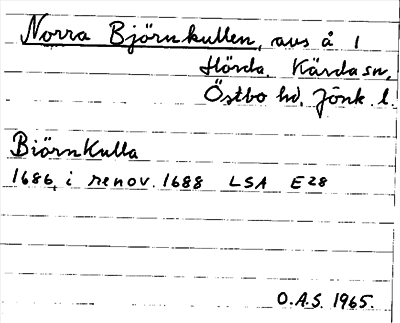 Norra Björnkullen, avs å 1
Hörda, Kärda sn,
Östbo hd, Jönk. l.
Biörnkulla
1686, i renov. 1688 LSA E28
O.A.S. 1965.